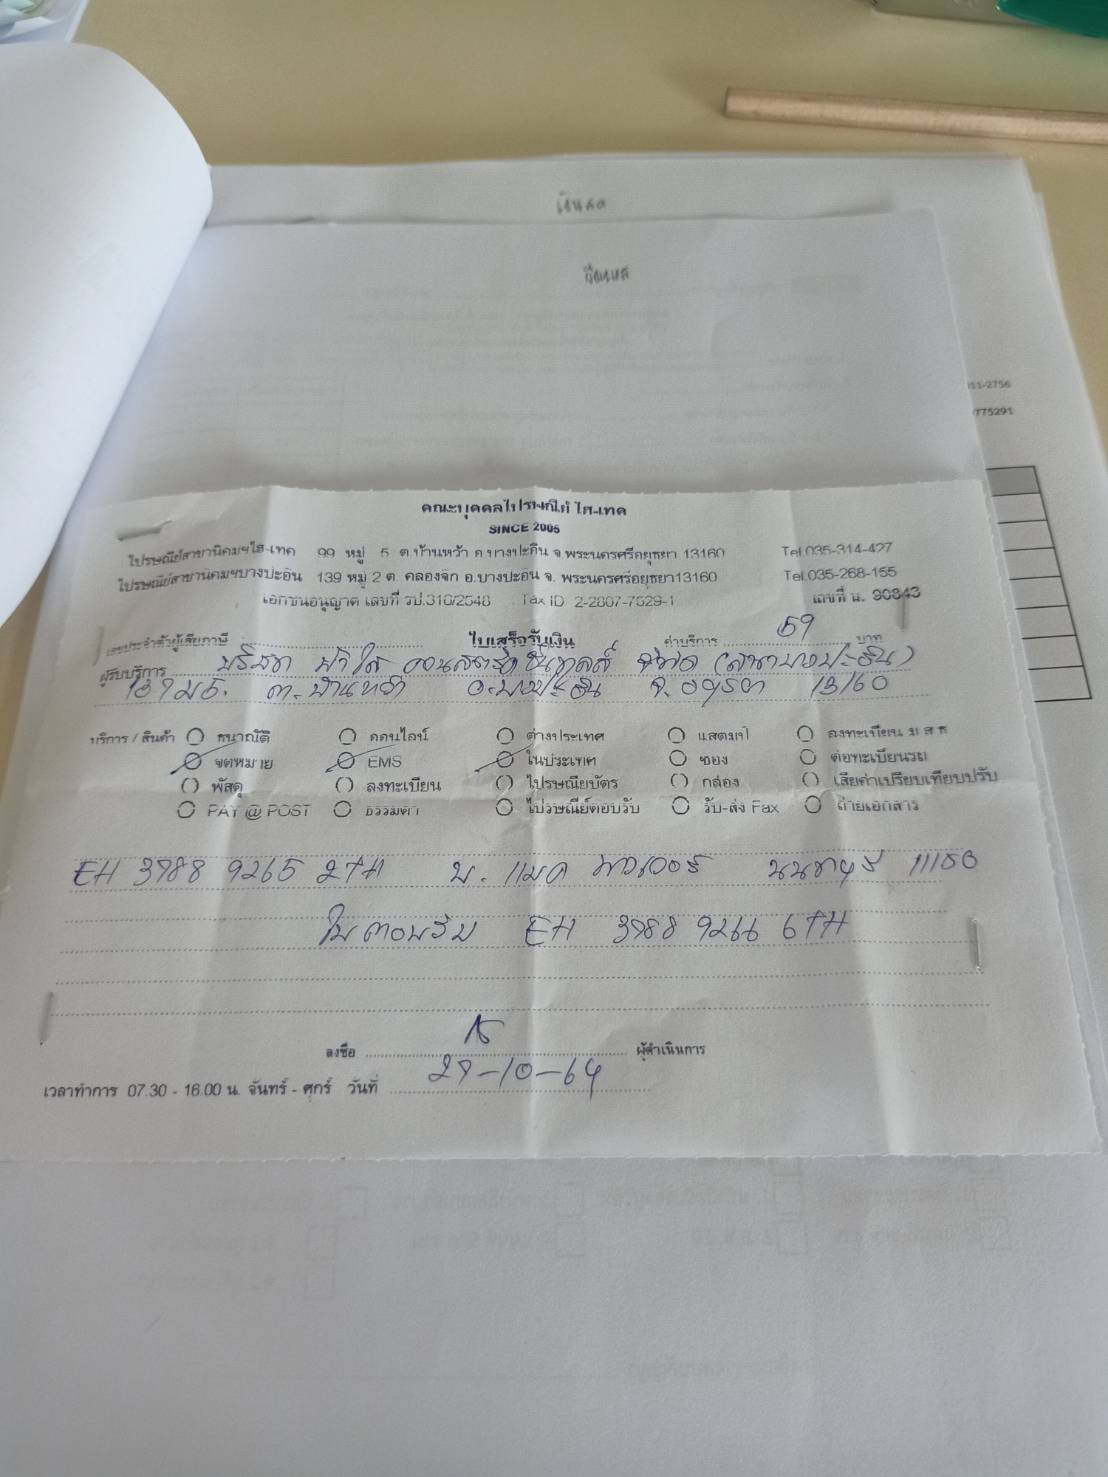 เงินสด
011-2756
775291
คณะบุคคลไปรษณีย์ ไฮ-เทค
SINCE 2005
ไปรษณีย์สาขานิคมฯไฮ-เทค 99 หมู่ 5 ต.บ้านหว้า อ.บางปะอิน จ.พระนครศรีอยุธยา 13160 Tel.035-314-427
ไปรษณีย์สาขานิคมฯบางปะอิน 139 หมู่ 2 ต. คลองจิก อ.บางปะอิน จ. พระนครศรีอยุธยา13160 Tel.035-268-155
เอกชนอนุญาต เลขที่ รป.310/2548 Tax ID 2-2807-7529-1 เลขที่ น. 90843
เลขประจำตัวผู้เสียภาษี ใบเสร็จรับเงิน ค่าบริการ 59 บาท
ผู้รับบริการ บริษัท ฟ้าใส คอนสตรัคชั่น จำกัด (สาขาบางปะอิน)
ม.5. ต.บ้านหว้า อ.บางปะอิน จ.อยุธยา 13160
บริการ / สินค้า ธนาณัติ ออนไลน์ ต่างประเทศ แสตมป์ ลงทะเบียน ม ส ท
จดหมาย EMS ในประเทศ ซอง ต่อทะเบียนรถ
พัสดุ ลงทะเบียน ไปรษณียบัตร กล่อง เสียค่าเปรียบเทียบปรับ
PAY @ POST ธรรมดา ไปรษณีย์ตอบรับ รับ-ส่ง Fax ถ่ายเอกสาร
EH 3988 9265 2TH บ. แมค พาวเวอร์ นนทบุรี 11150
ใบตอบรับ EH 3988 9266 6TH
ลงชื่อ ผู้ดำเนินการ
เวลาทำการ 07.30 - 16.00 น. จันทร์ - ศุกร์ วันที่ 29-10-64